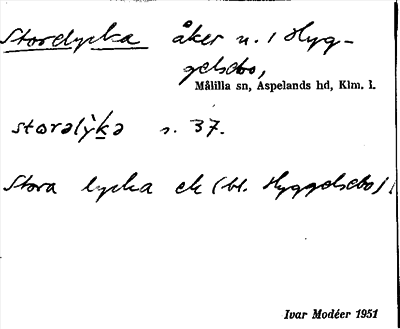 Storelycka åker u. / Hyg-
gelsebo,
Målilla sn, Aspelands hd, Klm. l.
storəlỳkə s. 37.
Stora lycka ek (bl. Hyggelsebo)
Ivar Modéer 1951